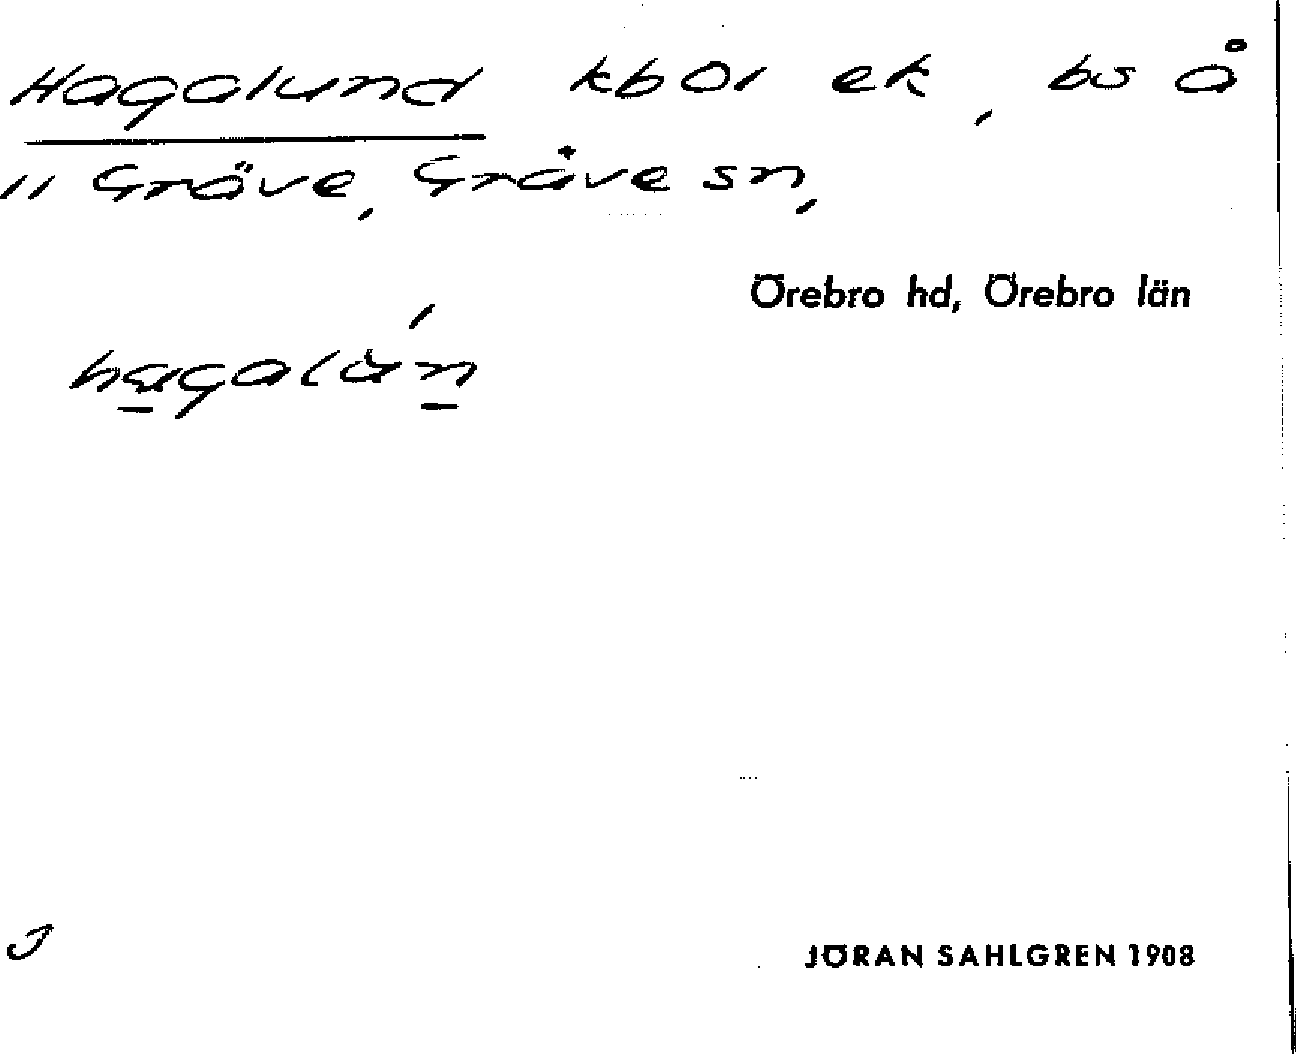 Hagalund kbol ek, bs å
11 Gräve, Gräve sn,
Örebro hd, Örebro län
hagalún
J
JÖRAN SAHLGREN 1908